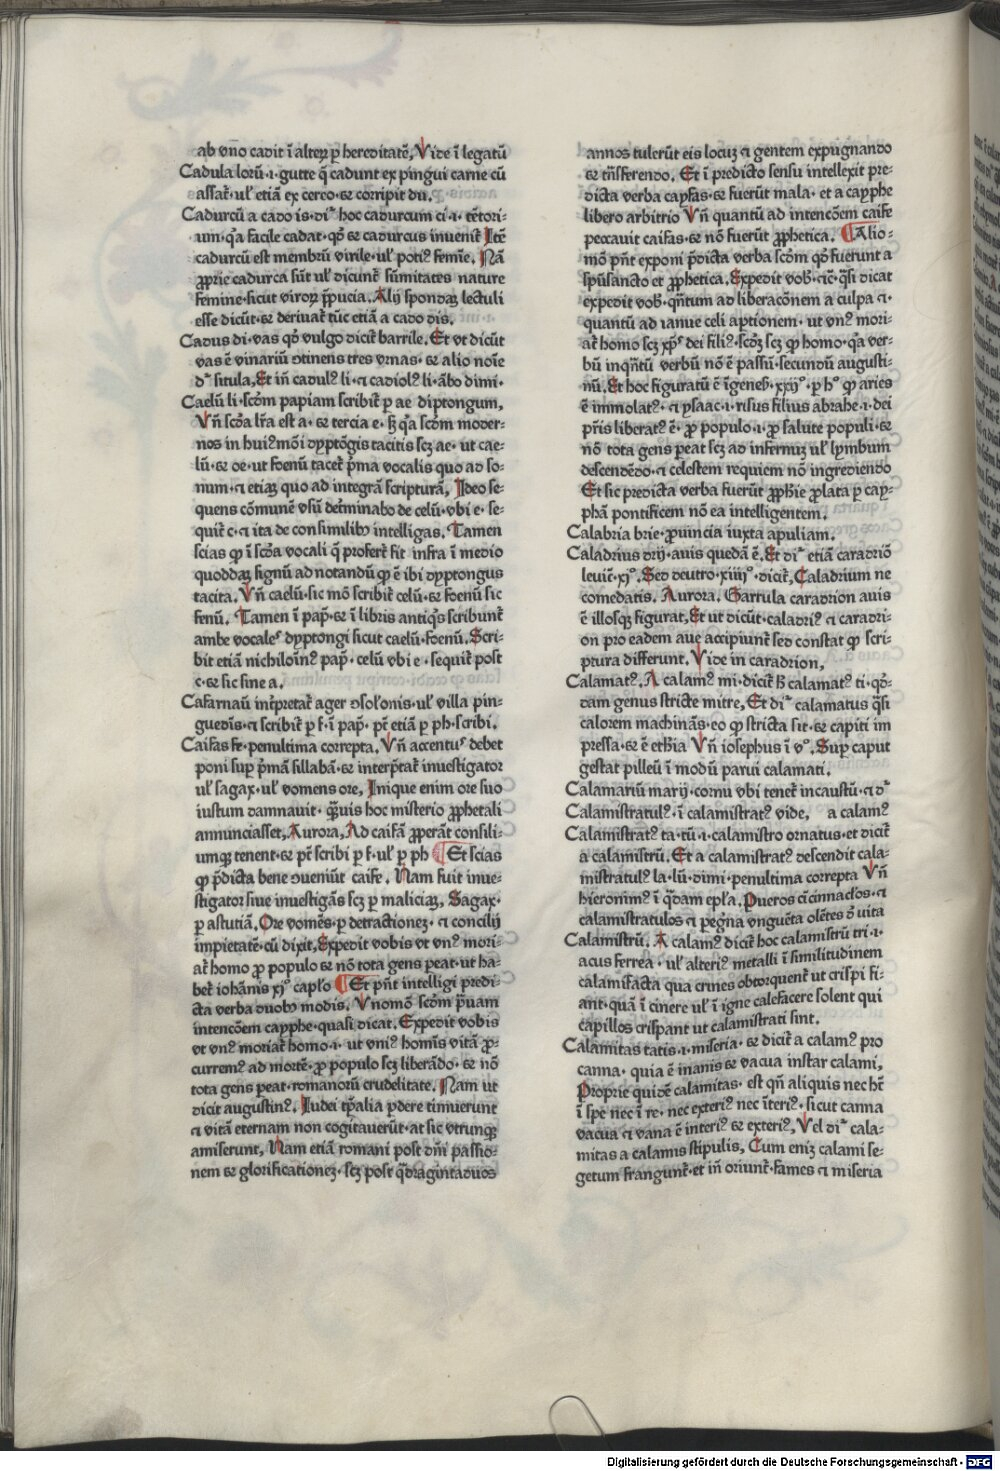 ab vno cadit ī alteꝝ ꝑ hereditatē, Vide ī legatū
Cadula lorū ·i· gutte q̄ cadunt ex pingui carne cū
assat᷑· ul᷑ etiā ex cereo· ꝛc corripit du.
Cadurcū a cado is· di᷑ hoc cadurcum ci ·i· tētori-
um· q̓a facile cadat· qđ ꝛc cadurcus inuenit᷑ Itē
cadurcū est membrū virile· ul᷑ potiꝰ femīe. Nā
ꝓprie cadurca sūt ul᷑ dicunt᷑ sūmitates nature
femine· sicut viroꝝ p̄pucia. Alij spondaꝫ lectuli
esse dicūt· ꝛc deriuat᷑ tūc etiā a cado dis.
Cadus di· vas qđ vulgo dicit᷑ barrile. Et vt dicūt
vas ē vinariū ↄtinens tres vrnas· ꝛc alio noīe
d᷑ situla, Et iñ cadulꝰ li· ⁊ cadiolꝰ li· ābo dimi.
Caelū li· scđm papiam scribit᷑ ꝑ ae diptongum,
Vñ scđa lr̄a est a· ꝛc tercia e· ꝫ q̓a scđm moder-
nos in huiꝰmōi dyptōgis tacitis scꝫ ae· ut cae-
lū· ꝛc oe· ut foenū tacet᷑ p̓ma vocalis quo ad so-
num· ⁊ etiaꝫ quo ad integrā scripturā, Ideo se-
quens cōmunē vsū det̓minabo de celū· vbi e· se-
quit᷑ c· ⁊ ita de consimilibꝫ intelligas. Tamen
scias qꝫ ī scđa vocali q̄ profert᷑ fit infra ī medio
quoddaꝫ signū ad notandū qꝫ ē ibi dyptongus
tacita. Vñ caelū· sic mō scribit᷑ celū· ꝛc foenū sic
fenū. Tamen ī pap̄· ꝛc ī libris antiq̓s scribunt᷑
ambe vocales dyptongi sicut caelū· foenū. Scri-
bit etiā nichiloīnꝰ pap̄· celū vbi e· sequit᷑ post
c· ꝛc sic sine a.
Cafarnaū int̓pretat᷑ ager ↄsolonis· ul᷑ villa pin-
guedīs· ⁊ scribit᷑ ꝑ f· ī pap̄· pt̄ etiā ꝑ ph· scribi.
Caifas fe· penultima correpta. Vñ accentus debet
poni suꝑ p̓mā sillabā· ꝛc interp̄tat᷑ inuestigator
ul᷑ sagax· ul᷑ vomens ore, Inique enim ore suo
iustum damnauit· q̄uis hoc misterio ꝓphetali
annunciasset, Aurora, Ad caifā ꝓperāt consili-
umqꝫ tenent· ꝛc pt̄ scribi ꝑ f· ul᷑ ꝑ ph Et scias
qꝫ p̄dicta bene ↄueniūt caife. Nam fuit inue-
stigator siue inuestigās scꝫ ꝑ maliciaꝫ, Sagax·
ꝑ astutiā. Ore vomēs· ꝑ detractionez· ⁊ concilij
impietatē· cū dixit, Expedit vobis vt vnꝰ mori-
at᷑ homo ꝓ populo ꝛc nō tota gens pereat· ut ha-
bet᷑ iohānis xiº capl̓o Et pn̄t intelligi predi-
cta verba duobꝫ modis. Vnomō scđm p̄uam
intencōem cayphe· quasi dicat. Expedit vobis
vt vnꝰ moriat᷑ homo ·i· ut vniꝰ homīs vitā ꝓ-
curremꝰ ad mortē· ꝓ populo scꝫ liberādo· ꝛc nō
tota gens ꝑeat· romanorū crudelitate. Nam ut
dicit augustinꝰ. Iudei tp̄alia ꝑdere timuerunt
⁊ vitā eternam non cogitauerūt· at sic vtrunqꝫ
amiserunt, Nam etiā romani post dn̄i passio-
nem ꝛc glorificationez· scꝫ post q̄draginta duos
annos tulerūt eis locuꝫ ⁊ gentem expugnando
ꝛc tn̄sferendo. Et ī predicto sensu intellexit pre-
dicta verba cayfas· ꝛc fuerūt mala· et a cayphe
libero arbitrio Vñ quantū ad intencōem caife
peccauit caifas· ꝛc nō fuerūt ꝓphetica. Alio-
mō pn̄t exponi p̄dicta verba scđm qđ fuerunt a
spūsancto et ꝓphetica. Expedit vob̄· ⁊c̄· q̓si dicat
expedit vob̄· q̄ntum ad liberacōnem a culpa ⁊·
quantū ad ianue celi aptionem· ut vnꝰ mori-
at᷑ homo scꝫ xp̄s dei filiꝰ· scđꝫ scꝫ qꝫ homo· q̓a ver-
bū inq̄ntū verbū nō ē passū· secundū augusti-
nū. Et hoc figuratū ē īgeneb̄· xxijº· ꝑ hº qꝫ aries
ē immolatꝰ· ⁊ ysaac ·i· risus filius abrahe ·i· dei
pr̄is liberatꝰ ē· ꝓ populo ·i· ꝓ salute populi· ꝛc
nō tota gens ꝑeat scꝫ ad infernuꝫ ul᷑ lymbum
descendēdo· ⁊ celestem requiem nō ingrediendo
Et sic predicta verba fuerūt ꝓph̄ie ꝓlata ꝑ cay-
phā pontificem nō ea intelligentem.
Calabria brie· ꝓuincia iuxta apuliam.
Caladrius drij· auis quedā ē. Et di᷑ etiā caradriō
leuit᷑· xiº. Sed deutro· xiiijº· dicit᷑, Caladrium ne
comedatis. Aurora. Garrula caradrion auis
ē illosqꝫ figurat, Et ut dicūt· caladriꝰ ⁊ caradri-
on pro eadem aue accipiunt᷑ sed constat qꝫ scri-
ptura differunt. Vide in caradrion,
Calamatꝰ. A calamꝰ mi· dicit᷑ h̄ calamatꝰ ti· qđ-
dam genus stricte mitre, Et di᷑ calamatus q̓si
calorem machinās· eo qꝫ stricta sit· ꝛc capiti im
pressa· ꝛc ē eth̄ia Vñ iosephus ī vº. Suꝑ caput
gestat pilleū ī modū parui calamati.
Calamariū marij· cornu vbi tenet᷑ incaustū· ⁊ d᷑
Calamistratulꝰ· ī calamistratꝰ vide, a calamꝰ
Calamistratꝰ ta· tū ·i· calamistro ornatus· et dicit᷑
a calamistrū. Et a calamistratꝰ descendit cala-
mistratulꝰ la· lū· dimi· penultima correpta Vñ
hieronimꝰ ī q̄dam epl̄a. Pueros cīcinnatos· ⁊
calamistratulos ⁊ peg̓na vnguēta olētes đ uita
Calamistrū. A calamꝰ dicit᷑ hoc calamistrū tri ·i·
acus ferrea· ul᷑ alteriꝰ metalli ī similitudinem
calami· facta qua crines obtorquent᷑ ut crispi fi-
ant· quā ī cinere ul᷑ ī igne calefacere solent qui
capillos crispant ut calamistrati sint.
Calamitas tatis ·i· miseria· ꝛc dicit᷑ a calamꝰ pro
canna· quia ē inanis ꝛc vacua instar calami,
Proprie quidē calamitas· est qn̄ aliquis nec h̄t
ī spe nec ī re· nec exteriꝰ nec īteriꝰ· sicut canna
vacua ⁊ vana ē interiꝰ ꝛc exteriꝰ, Vel di᷑ cala-
mitas a calamis stipulis, Cum enīꝫ calami se-
getum frangunt᷑· et iñ oriunt᷑· fames ⁊ miseria
Digitalisierung gefördert durch die Deutsche Forschungsgemeinschaft - DFG